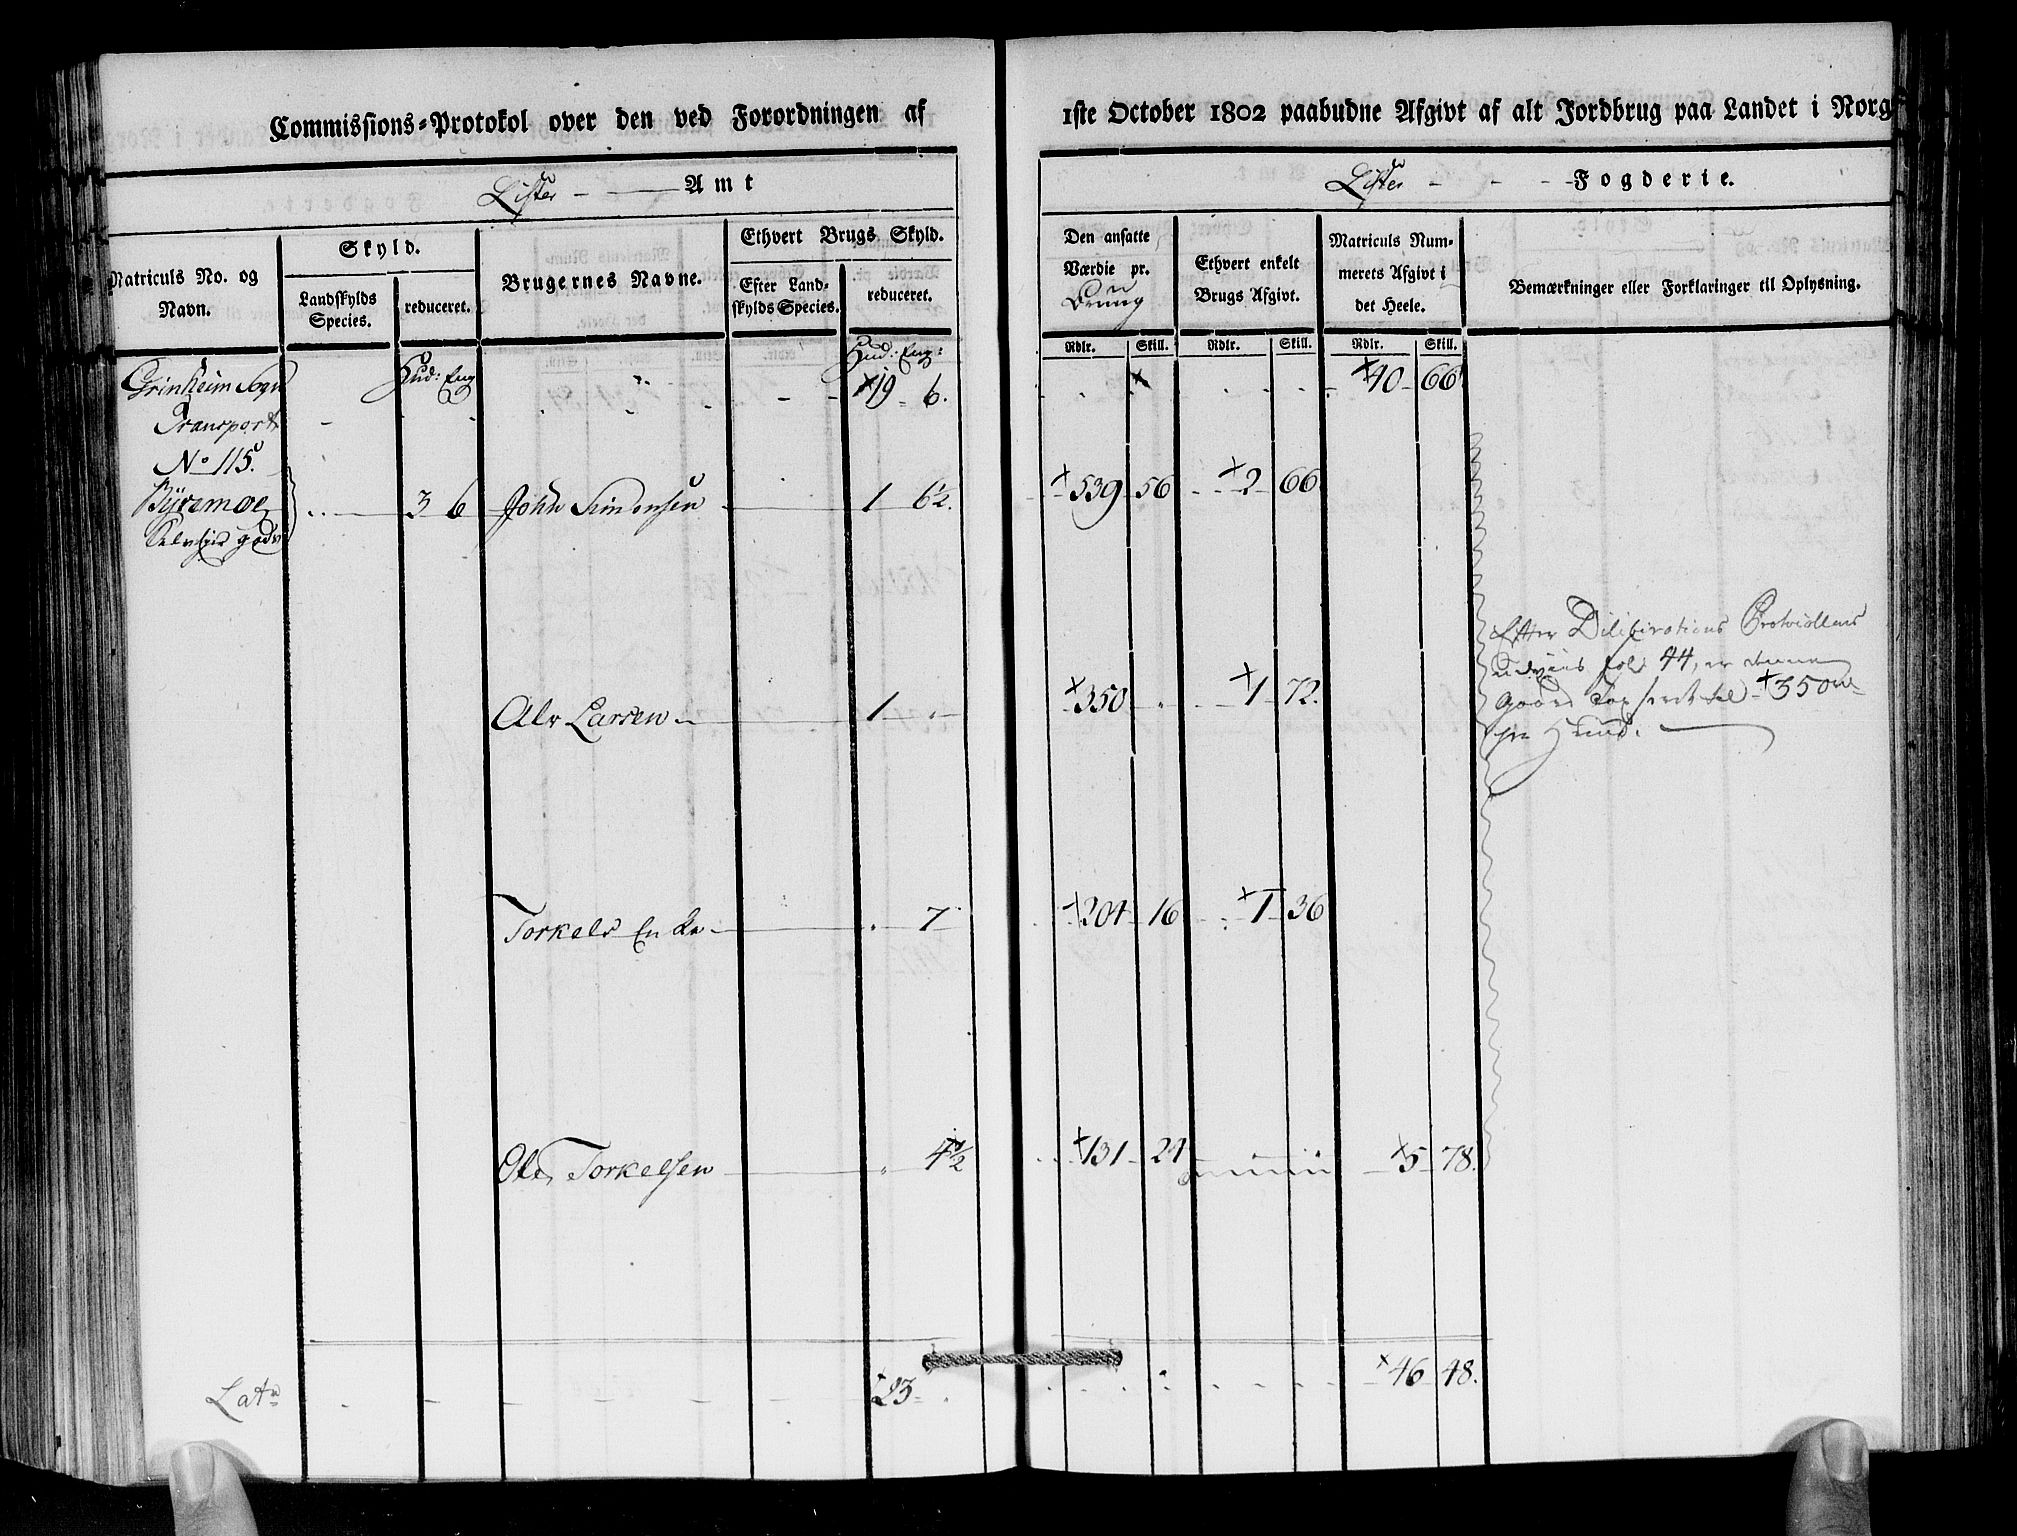 Commissions-Protokol over den ved Forordningen af
1ste October 1802 paabudne Afgivt af alt Jordbrug paa Landet i Norg
Lister Amt
Lister Fogderie.
Matriculs No. og Navn.
Skyld.
Landskylds Species.
reduceret.
Brugernes Navne.
Ethvert Brugs Skyld.
Efter Landskylds Species.
reduceret.
Den ansatte Værdie pr. Brug
Ethvert enkelt Brugs Afgivt.
Matriculs Nummerets Afgivt i det Heele.
Bemærkninger eller Forklaringer til Oplysning.
Rdlr. Skill. Rdlr. Skill. Rdlr. Skill.
Grinheim Sogn Hud: Eng Hud: Eng: ×19 6. ×40 66
Transport
No 115.
Byremoe 3 6 John Simonsen 1 6½. ×539 56 ×2 66
Selveier gods
Efter Deliberations Protocollens
Udviis fol: 44, er denne
Ale Larsen 1 ×350 ×1 72.
Gaard ansat til ×350
pr Hud.
Torkels Enke 7 ×204 16 ×1 36
Ole Torkelsen 4½ ×131 24 ×5 78.
Lat 23 ×46 48.